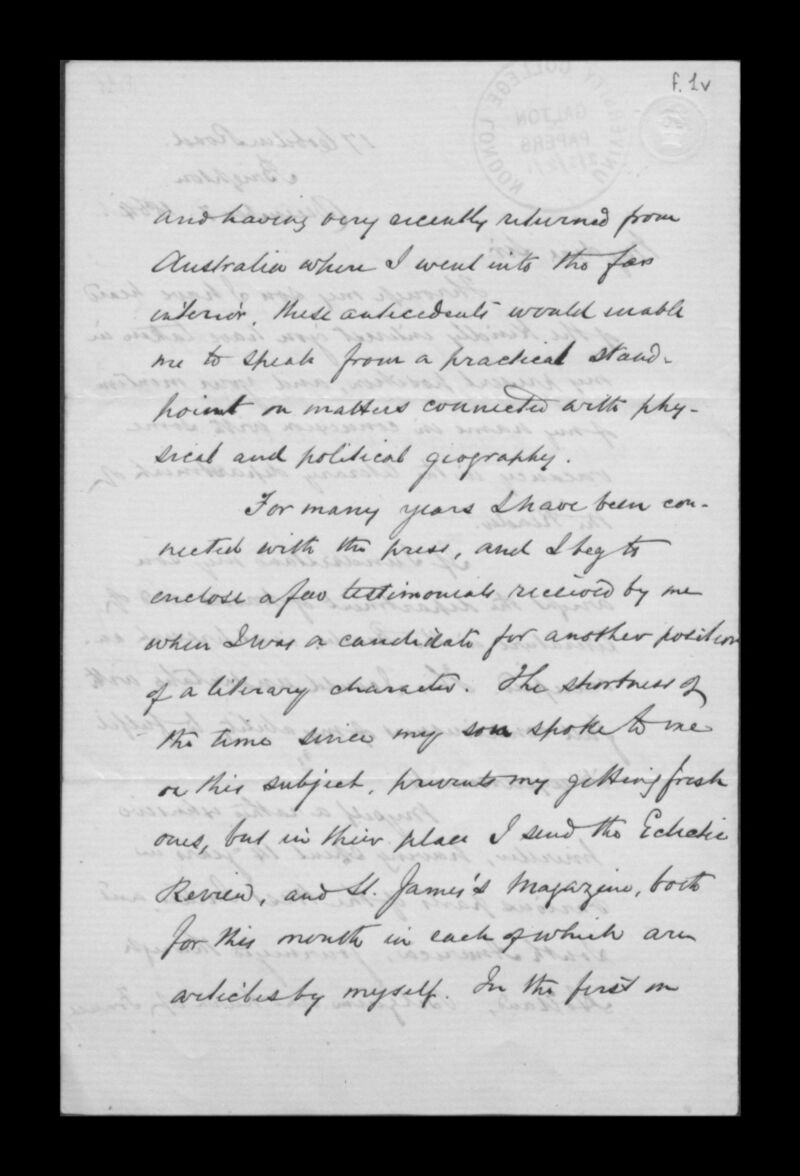 f. 1v
UNIVERSITY COLLEGE LONDON
GALTON
PAPERS
and having very recently returned from
Australia where I went into the far
interior, these antecedents would enable
me to speak from a practical stand-
point on matters connected with phy-
sical and political geography.
For many years I have been con-
nected with the press, and I beg to
enclose a few testimonials received by me
when I was a candidate for another position
of a literary character. The shortness of
the time since my son spoke to me
on this subject, prevents my getting fresh
ones, but in their place I send the Eclectic
Review, and St. James's Magazine, both
for this month in each of which are
articles by myself. In the first on